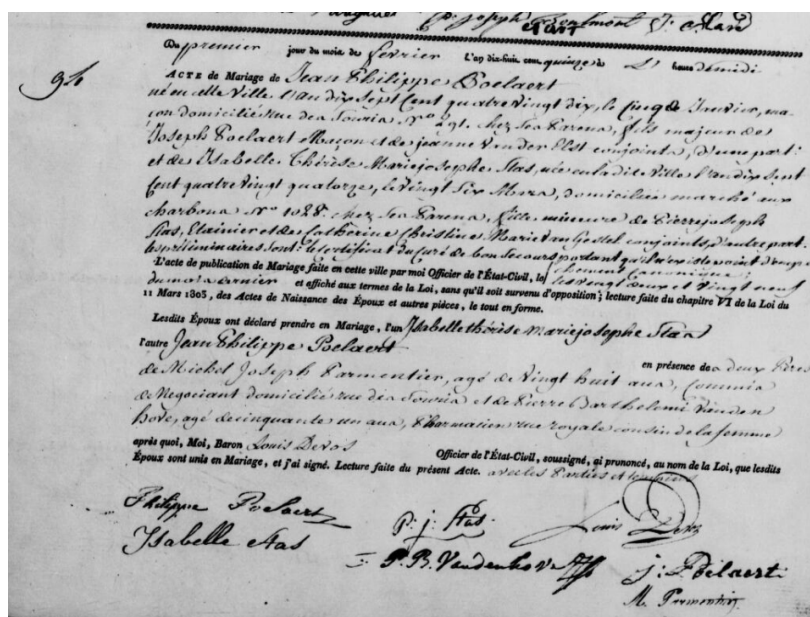 Joseph Parmentier J: Stas
Du premier jour du mois de février L'an dix-huit cent quinze à heures midi
94
ACTE de Mariage de Jean Philippe Poelaert
né en cette ville l'an dix sept Cent quatre vingt dix, le Cinq de Janvier, ma-
çon domicilié rue des Souris N° 291. chez ses Parens, fils majeur de
Joseph Poelaert Maçon et de jeanne Vander Elst conjoints, d'une part:
et de Isabelle Thérèse Marie josephe Stas, née en ladite ville l'an dix sept
Cent quatre vingt quatorze, le vingt Six Mars, domiciliée marché aux
charbons N° 1028. chez ses Parens, fille mineure de Pierre joseph
Stas, Etainier et de Catherine Christine Marie Van Gestel conjoints, d'autre part.
les préliminaires sont: le certificat du Curé de bon Secours portant qu'il n'existe point d'empê-
chement Canonique;
L'acte de publication de Mariage faite en cette ville par moi Officier de l'État-Civil, les vingt deux et vingt neuf
du mois dernier et affiché aux termes de la Loi, sans qu'il soit survenu d'opposition; lecture faite du chapitre VI de la Loi du
11 Mars 1803, des Actes de Naissance des Époux et autres pièces, le tout en forme.
Lesdits Époux ont déclaré prendre en Mariage, l'un Isabelle thérèse Marie josephe Stas
l'autre Jean Philippe Poelaert
en présence des deux Pères
de Michel Joseph Parmentier, agé de Vingt huit ans, Commis
de Negociant domicilié rue des Souris et de Pierre Barthelemi Vanden
hove, agé de cinquante un ans, Pharmacien rue royale cousin de la femme
après quoi, Moi, Baron Louis Devos Officier de l'État-Civil, soussigné, ai prononcé, au nom de la Loi, que lesdits
Époux sont unis en Mariage, et j'ai signé. Lecture faite du présent Acte. avec les Parties et temoins
Philippe Poelaert
P. j. Stas.
Louis Devos
Isabelle Stas
P. B. Vandenhove
j: Poelaert
M. Parmentier